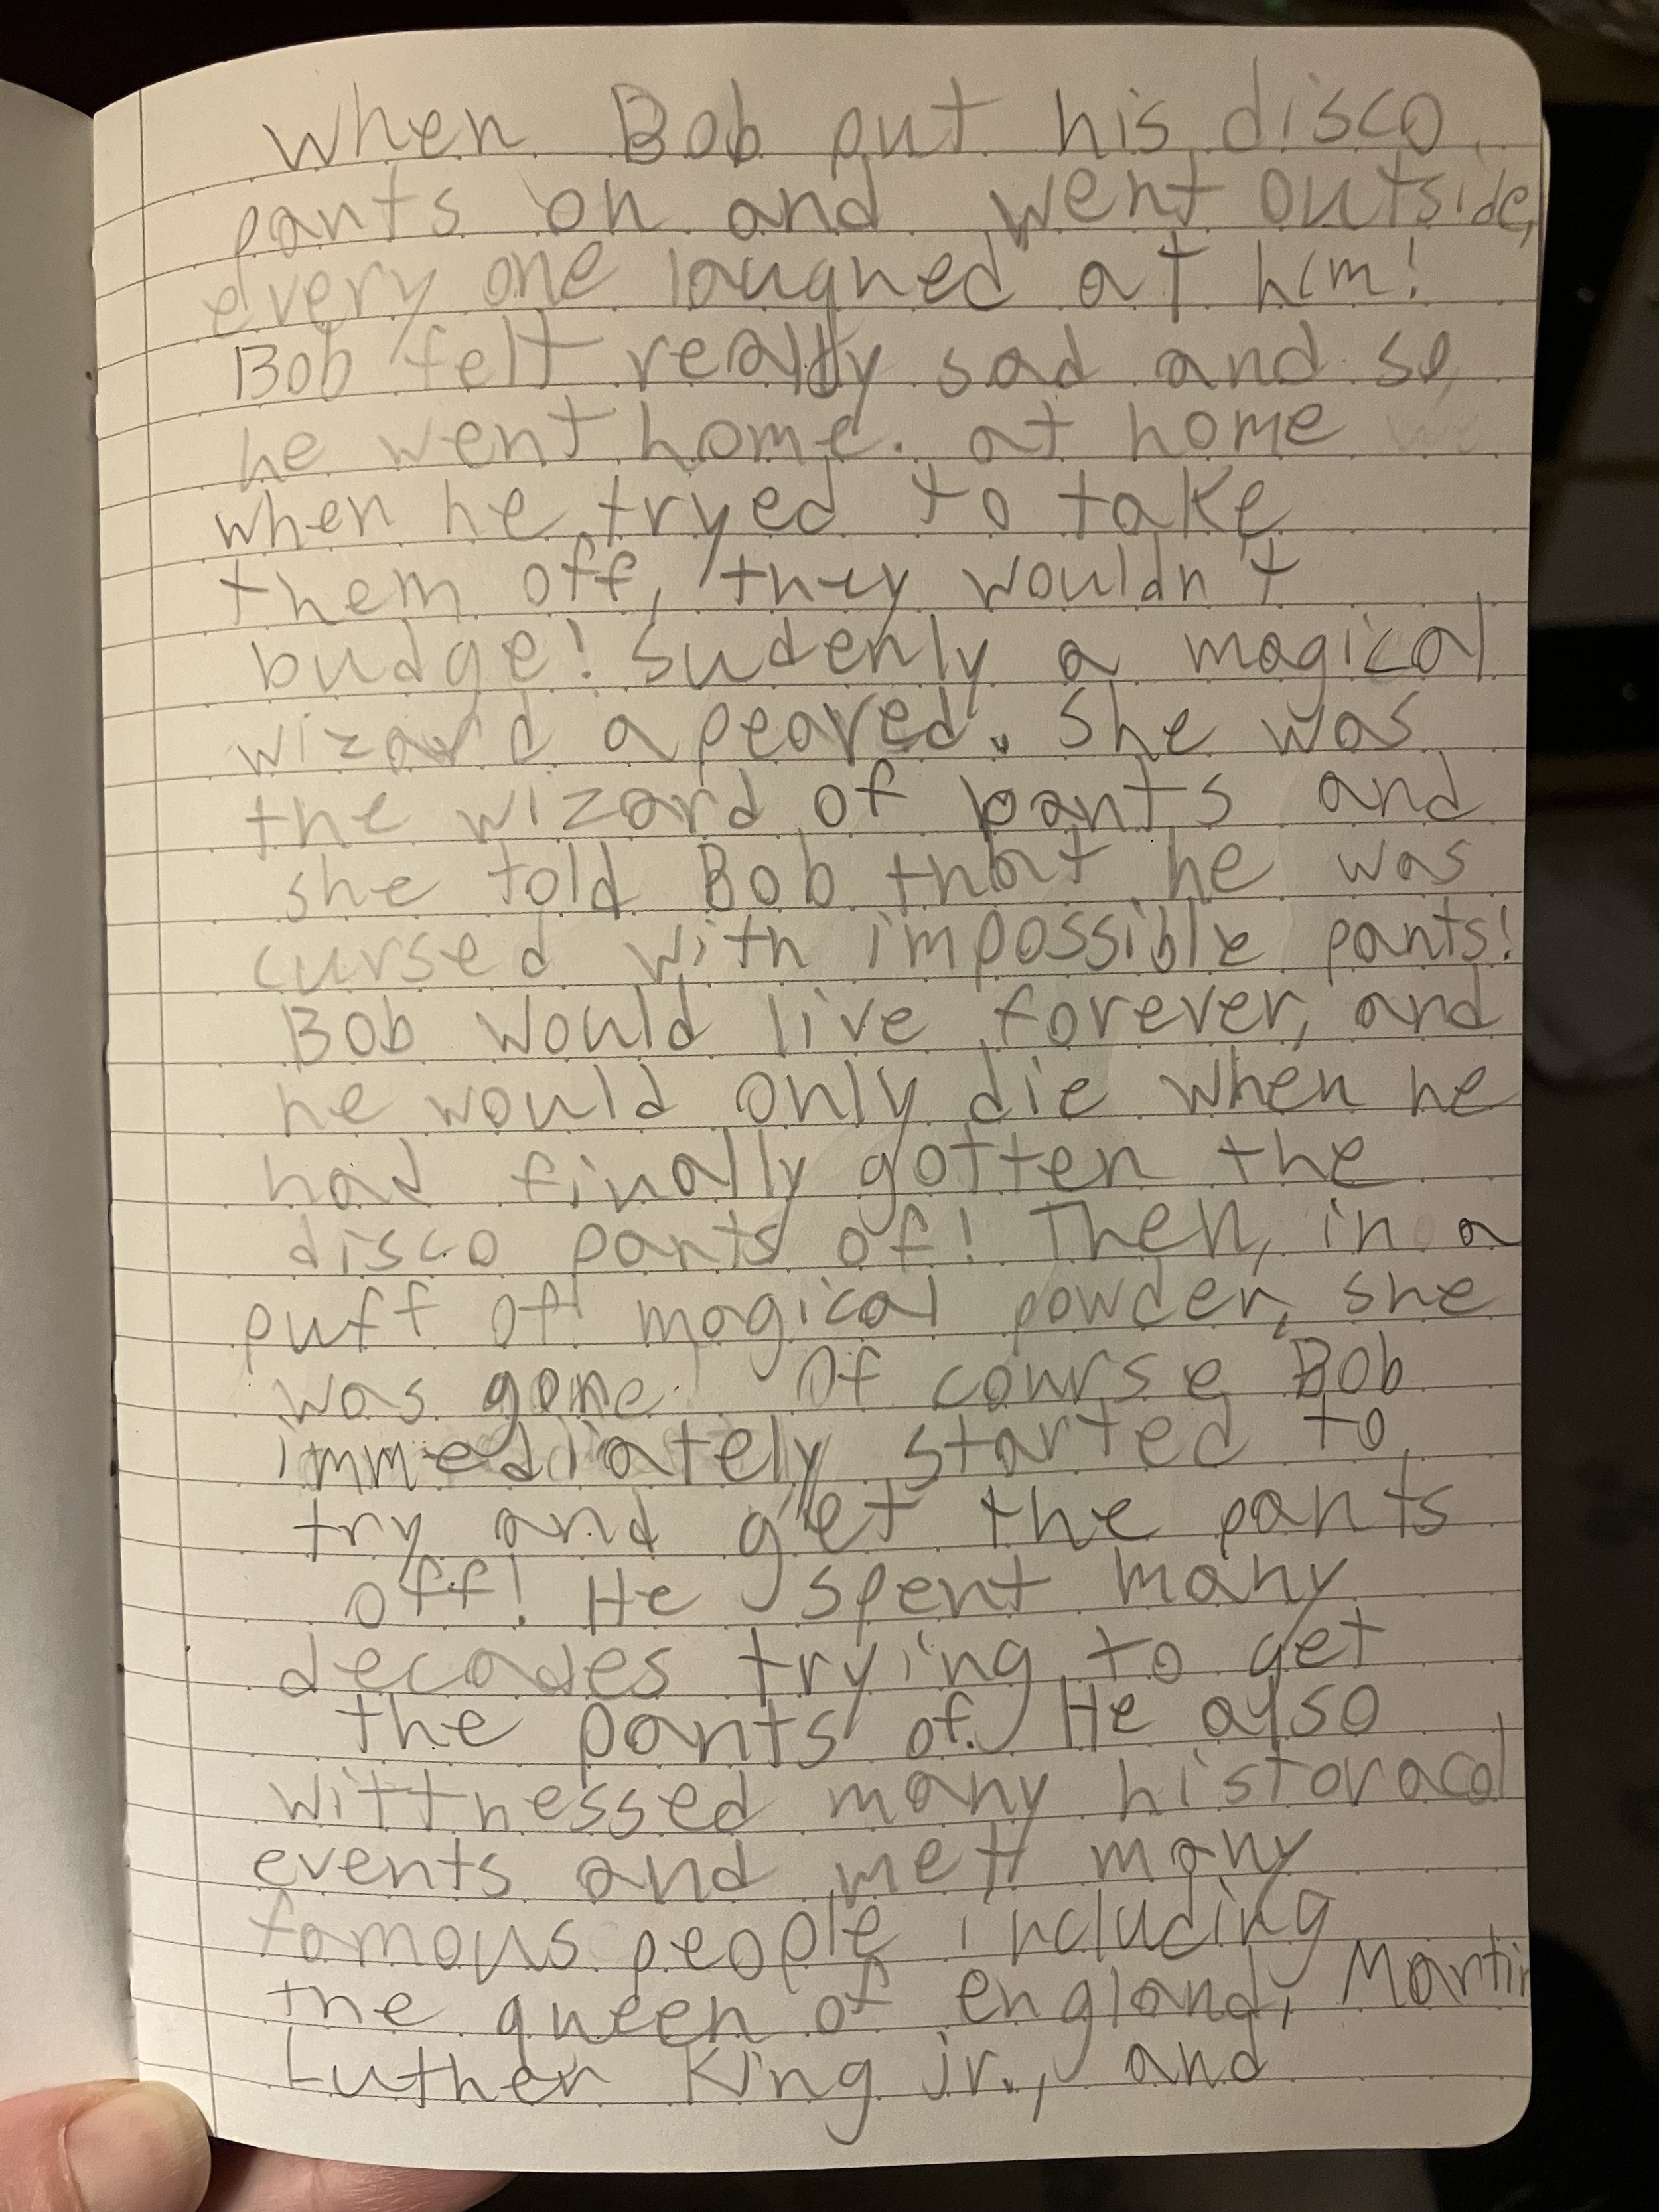 When Bob put his disco
pants on and went outside,
every one laughed at him!
Bob felt really sad and so
he went home. at home we
when he tryed to take
them off, they wouldn't
budge! Sudenly a magical
wizard apeared. She was
the wizard of pants and
she told Bob that he was
cursed with impossible pants!
Bob would live forever, and
he would only die when he
had finally gotten the
disco pants of! Then, in a
puff of magical powder, she
was gone. Of course Bob
immediately started to
try and get the pants
off! He spent many
decades trying to get
the pants of. He also
wittnessed many historacal
events and mett many
famous people including
the queen of england, Martin
Luther King jr., and